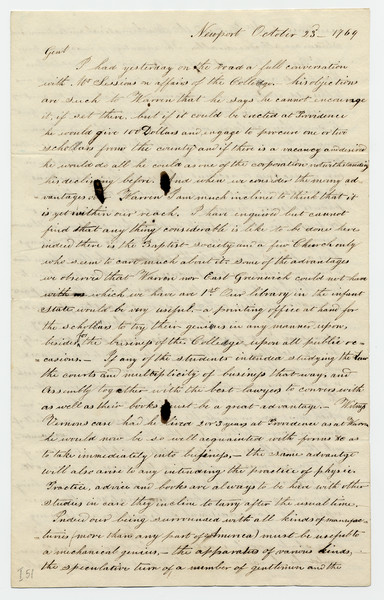 Newport October 23 - 1769
Gent
I had yesterday on the road a full conversation
with Mr Sessions on affairs of the Colledge. his objections
are such to Warren that he says he cannot encourage
it, if set there. but if it could be erected at Providence
he would give 100 Dollars and engage to procure one or two
schollars from the county and if there is a vacancy and desired
he would do all he could as one of the corporation notwithstanding
his declining before. And when we consider the many ad-
vantages Warren I am much inclined to think that it
is yet within our reach. I have enquired but cannot
find that any thing considerable is like to be done here
indeed there is the Baptist society and a few Church only
who seem to care much about it. some of the advantages
we observed that Warren nor East Greenwich could not have
with us which we have are 1st Our library in the infant
state would be very useful. a printing office at hand for
the schollars to try their genious in any manner upon,
besides the business of the Colledge upon all public oc-
casions. - If any of the students intended studying the law
the courts and multiplicity of business that way, and
Assembly together with the best lawyers to converse with
as well as their books must be a great advantage. - Witness
Vernons case had he lived 2 or 3 years at Providence as at Warren
he would now be so well acquainted with forms &c as
to take immediately into business, - the same advantage
will also arise to any intending the practice of physic.
Practice, advice and books are always to be had with other
studies in case they incline to tarry after the usual time.
Indeed our being surrounded with all kinds of manufac-
turies (more than any part of America) must be useful to
a mechanical genius, - the apparatus of various kinds, -
the speculative turn of a number of gentlemen and the
I 51